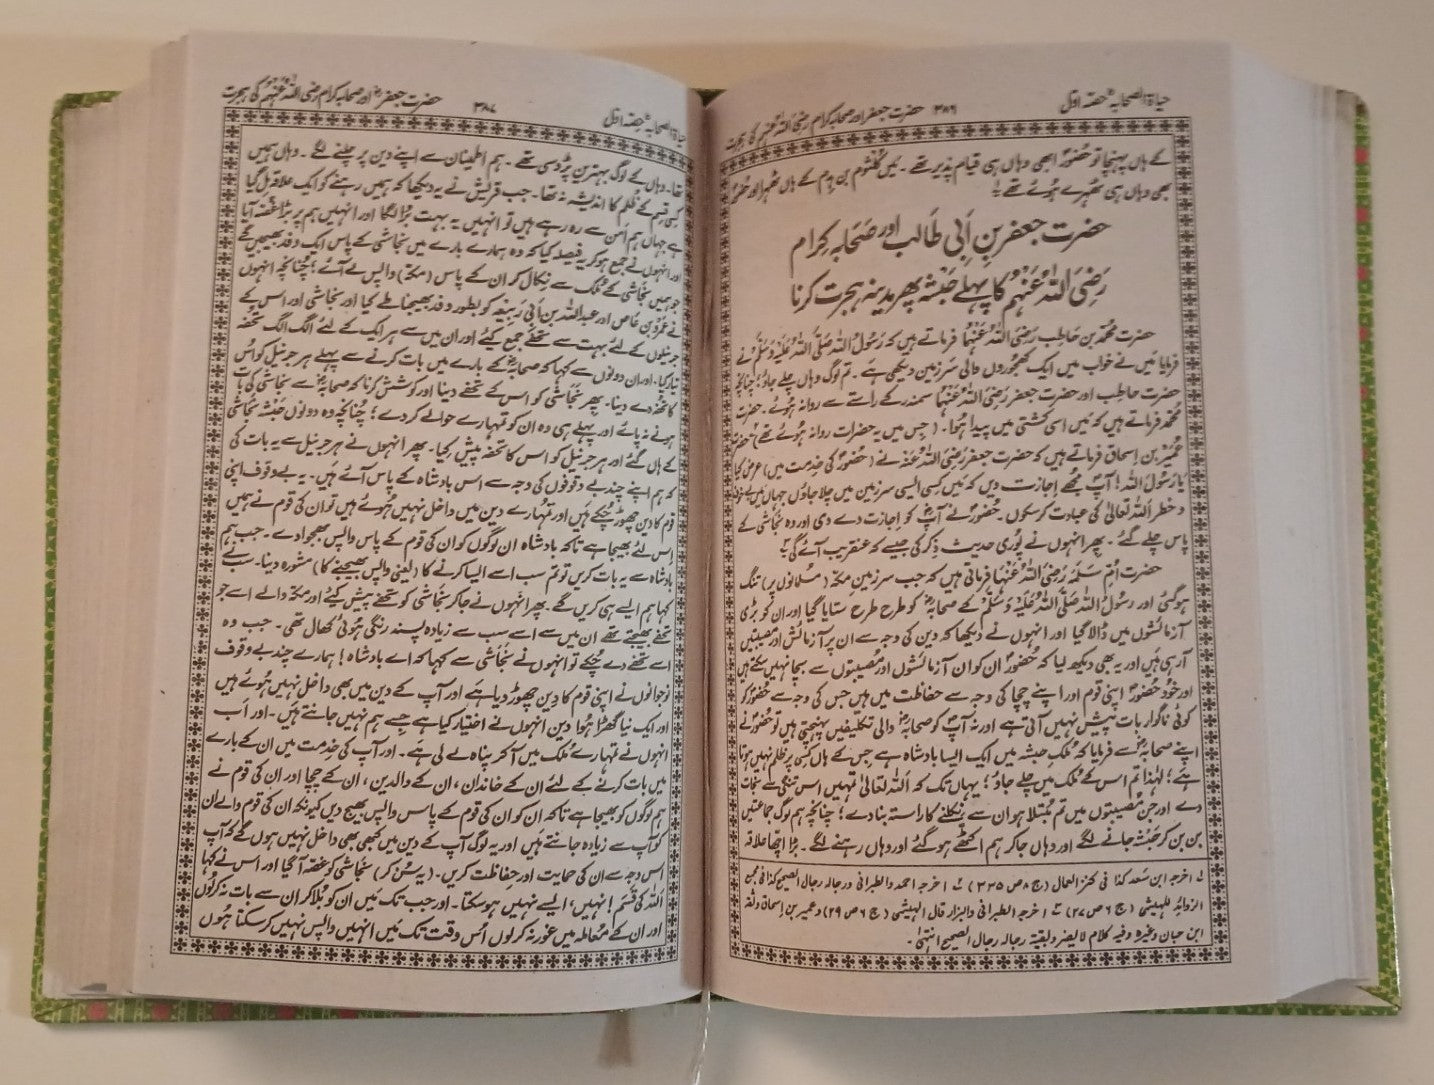 حیاۃ الصحابہؓ حصہ اول
۳۸۶
حضرت جعفر اور صحابہ کرام رضی اللہ عنہم کی ہجرت
کے ہاں پہنچا تو حضورؐ ابھی وہاں ہی قیام پذیر تھے ۔ میں کلثوم بن ہدم کے ہاں ٹھہرا اور حضورؐ
بھی وہاں ہی ٹھہرے ہوئے تھے
حضرت جعفر بن ابی طالب اور صحابہ کرام
رضی اللہ عنہم کا پہلے حبشہ پھر مدینہ ہجرت کرنا
حضرت محمد بن حاطب رضی اللہ عنہما فرماتے ہیں کہ رسول اللہ صلی اللہ علیہ وسلم نے
فرمایا میں نے خواب میں ایک کھجوروں والی سرزمین دیکھی ہے ۔ تم لوگ وہاں چلے جاؤ؛ چنانچہ
حضرت حاطب اور حضرت جعفر رضی اللہ عنہما سمندر کے راستے سے روانہ ہوئے ۔ حضرت
محمد فرماتے ہیں کہ میں اسی کشتی میں پیدا ہوا ۔ ( جس میں یہ حضرات روانہ ہوئے تھے ) حضرت
عمیر بن اسحاق فرماتے ہیں کہ حضرت جعفر رضی اللہ عنہ نے ( حضورؐ کی خدمت میں ) عرض کیا
یا رسول اللہ ! آپؐ مجھے اجازت دیں کہ میں کسی ایسی سرزمین میں چلا جاؤں جہاں میں بے خوف
و خطر اللہ تعالیٰ کی عبادت کر سکوں ۔ حضورؐ نے آپؓ کو اجازت دے دی اور وہ نجاشی کے
پاس چلے گئے ۔ پھر انہوں نے پوری حدیث ذکر کی جیسے کہ عنقریب آئے گی
حضرت ام سلمہ رضی اللہ عنہا فرماتی ہیں کہ جب سرزمین مکہ ( مسلمانوں پر ) تنگ
ہو گئی اور رسول اللہ صلی اللہ علیہ وسلم کے صحابہؓ کو طرح طرح ستایا گیا اور ان کو بڑی
آزمائشوں میں ڈالا گیا اور انہوں نے دیکھا کہ دین کی وجہ سے ان پر آزمائش اور مصیبتیں
آ رہی ہیں اور یہ بھی دیکھ لیا کہ حضورؐ ان کو ان آزمائشوں اور مصیبتوں سے بچا نہیں سکتے ہیں
اور خود حضورؐ اپنی قوم اور اپنے چچا کی وجہ سے حفاظت میں ہیں جس کی وجہ سے حضورؐ کو
کوئی ناگوار بات پیش نہیں آتی ہے اور نہ آپؐ کو صحابہؓ والی تکلیفیں پہنچتی ہیں تو حضورؐ نے
اپنے صحابہؓ سے فرمایا کہ ملک حبشہ میں ایک ایسا بادشاہ ہے جس کے ہاں کسی پر ظلم نہیں ہوتا
ہے ؛ لہٰذا تم اس کے ملک میں چلے جاؤ ؛ یہاں تک کہ اللہ تعالیٰ تمہیں اس تنگی سے نجات
دے اور جن مصیبتوں میں تم مبتلا ہو ان سے نکلنے کا راستہ بنا دے ؛ چنانچہ ہم لوگ جماعتیں
بن بن کر حبشہ جانے لگے اور وہاں جا کر ہم اکٹھے ہو گئے اور وہاں رہنے لگے ۔ بڑا اچھا علاقہ
اخرجہ ابن سعد کذا فی کنز العمال ( ج ۸ ص ۳۳۵ ) اخرجہ احمد والطبرانی ورجالہ رجال الصحیح کذا فی مجمع
الزوائد للہیثمی ( ج ۶ ص ۲۷ ) اخرجہ الطبرانی والبزار قال الہیثمی ( ج ۶ ص ۲۹ ) وعمیر بن اسحاق وثقہ
ابن حبان وغیرہ وفیہ کلام لا یضر وبقیۃ رجالہ رجال الصحیح انتہیٰ ۔
حیاۃ الصحابہؓ حصہ اول
۳۸۷
حضرت جعفرؓ اور صحابہ کرام رضی اللہ عنہم کی ہجرت
تھا ۔ وہاں کے لوگ بہترین پڑوسی تھے ۔ ہم اطمینان سے اپنے دین پر چلنے لگے ۔ وہاں ہمیں
کسی قسم کے ظلم کا اندیشہ نہ تھا ۔ جب قریش نے یہ دیکھا کہ ہمیں رہنے کو ایک علاقہ مل گیا
ہے جہاں ہم امن سے رہ رہے ہیں تو انہیں یہ بہت برا لگا اور انہیں ہم پر بڑا غصہ آیا
اور انہوں نے جمع ہو کر یہ فیصلہ کیا کہ وہ ہمارے بارے میں نجاشی کے پاس ایک وفد بھیجیں گے
جو ہمیں نجاشی کے ملک سے نکال کر ان کے پاس ( مکہ ) واپس لے آئے ؛ چنانچہ انہوں
نے عمرو بن عاص اور عبد اللہ بن ابی ربیعہ کو بطور وفد بھیجنا طے کیا اور نجاشی اور اس کے
جرنیلوں کے لئے بہت سے تحفے جمع کئے اور ان میں سے ہر ایک کے لئے الگ الگ تحفہ
تیار کیا ۔ اور ان دونوں سے کہا کہ صحابہؓ کے بارے میں بات کرنے سے پہلے ہر جرنیل کو اس
کا تحفہ دے دینا ۔ پھر نجاشی کو اس کے تحفے دینا اور کوشش کرنا کہ صحابہؓ سے نجاشی کی بات
ہونے نہ پائے اور پہلے ہی وہ ان کو تمہارے حوالے کر دے ؛ چنانچہ وہ دونوں حبشہ نجاشی
کے ہاں گئے اور ہر جرنیل کو اس کا تحفہ پیش کیا ۔ پھر انہوں نے ہر جرنیل سے یہ بات کی
کہ ہم اپنے چند بے وقوفوں کی وجہ سے اس بادشاہ کے پاس آئے ہیں ۔ یہ بے وقوف اپنی
قوم کا دین چھوڑ چکے ہیں اور تمہارے دین میں داخل نہیں ہوئے ہیں تو ان کی قوم نے ہمیں
اس لئے بھیجا ہے تاکہ بادشاہ ان لوگوں کو ان کی قوم کے پاس واپس بھجوا دے ۔ جب ہم
بادشاہ سے یہ بات کریں تو تم سب اسے ایسا کرنے کا ( یعنی واپس بھیجنے کا ) مشورہ دینا ۔ سب نے
کہا ہم ایسے ہی کریں گے ۔ پھر انہوں نے جا کر نجاشی کو تحفے پیش کیئے اور مکہ والے اسے جو
تحفے بھیجتے تھے ان میں سے اسے سب سے زیادہ پسند رنگی ہوئی کھال تھی ۔ جب وہ
اسے تحفے دے چکے تو انہوں نے نجاشی سے کہا کہ اے بادشاہ ! ہمارے چند بے وقوف
نوجوانوں نے اپنی قوم کا دین چھوڑ دیا ہے اور آپ کے دین میں بھی داخل نہیں ہوئے ہیں
اور ایک نیا گھڑا ہوا دین انہوں نے اختیار کیا ہے جسے ہم نہیں جانتے ہیں ۔ اور اب
انہوں نے تمہارے ملک میں آ کر پناہ لے لی ہے ۔ اور آپ کی خدمت میں ان کے بارے
میں بات کرنے کے لئے ان کے خاندان ، ان کے والدین ، ان کے چچا اور ان کی قوم نے
ہم لوگوں کو بھیجا ہے تاکہ ان کو ان کی قوم کے پاس واپس بھیج دیں کیونکہ ان کی قوم والے ان
کو آپ سے زیادہ جانتے ہیں اور یہ لوگ آپ کے دین میں کبھی بھی داخل نہیں ہوں گے کہ آپ
اس وجہ سے ان کی حمایت اور حفاظت کریں ۔ ( یہ سن کر ) نجاشی کو غصہ آ گیا اور اس نے کہا
اللہ کی قسم ! نہیں ، ایسے نہیں ہو سکتا ۔ اور جب تک میں ان کو بلا کر ان سے بات نہ کر لوں
اور ان کے معاملہ میں غور نہ کر لوں اس وقت تک میں انہیں واپس نہیں کر سکتا ہوں